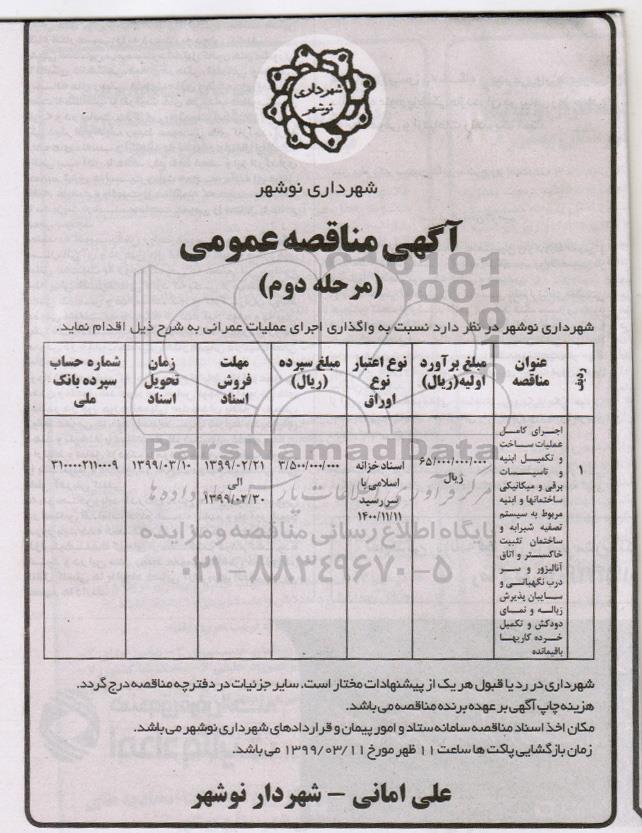 شهرداری
نوشهر
شهرداری نوشهر
آگهی مناقصه عمومی
(مرحله دوم)
شهرداری نوشهر در نظر دارد نسبت به واگذاری اجرای عملیات عمرانی به شرح ذیل اقدام نماید.
ردیف
عنوان
مناقصه
مبلغ برآورد
اولیه(ریال)
نوع اعتبار
نوع
اوراق
مبلغ سپرده
(ریال)
مهلت
فروش
اسناد
زمان
تحویل
اسناد
شماره حساب
سپرده بانک
ملی
۱
اجرای کامل
عملیات ساخت
و تکمیل ابنیه
و تاسیسات
برقی و میکانیکی
ساختمانها و ابنیه
مربوط به سیستم
تصفیه شیرابه و
ساختمان تثبیت
خاکستر و اتاق
آنالیزور و سر
درب نگهبانی و
سایبان پذیرش
زباله و نمای
دودکش و تکمیل
خرده کاریها
باقیمانده
۶۵/۰۰۰/۰۰۰/۰۰۰
ریال
اسناد خزانه
اسلامی با
سررسید
۱۴۰۰/۱۱/۱۱
۳/۵۰۰/۰۰۰/۰۰۰
۱۳۹۹/۰۲/۲۱
الی
۱۳۹۹/۰۲/۳۰
۱۳۹۹/۰۳/۱۰
۳۱۰۰۰۰۲۱۱۰۰۰۹
ParsNamadData
مرکز فرآوری اطلاعات پارس نماد داده ها
پایگاه اطلاع رسانی مناقصه و مزایده
۰۲۱-۸۸۳۴۹۶۷۰-۵
شهرداری در رد یا قبول هر یک از پیشنهادات مختار است. سایر جزئیات در دفترچه مناقصه درج گردد.
هزینه چاپ آگهی بر عهده برنده مناقصه می باشد.
مکان اخذ اسناد مناقصه سامانه ستاد و امور پیمان و قراردادهای شهرداری نوشهر می باشد.
زمان بازگشایی پاکت ها ساعت ۱۱ ظهر مورخ ۱۳۹۹/۰۳/۱۱ می باشد.
علی امانی - شهردار نوشهر